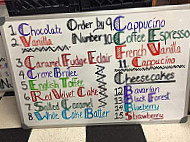 1 Chocolate
2 Vanilla
Order by
Number
3 Caramel Fudge Eclair
4 Creme Brulee
5 English Toffee
6 Red Velvet Cake
7 Salted Caramel
8 White Cake Batter
9 Cappucino
10 Coffee Espresso
French Vanilla
11 Cappucino
Cheesecakes
12 Bavarian
13 Black Forest
14 Blueberry
15 Strawberry